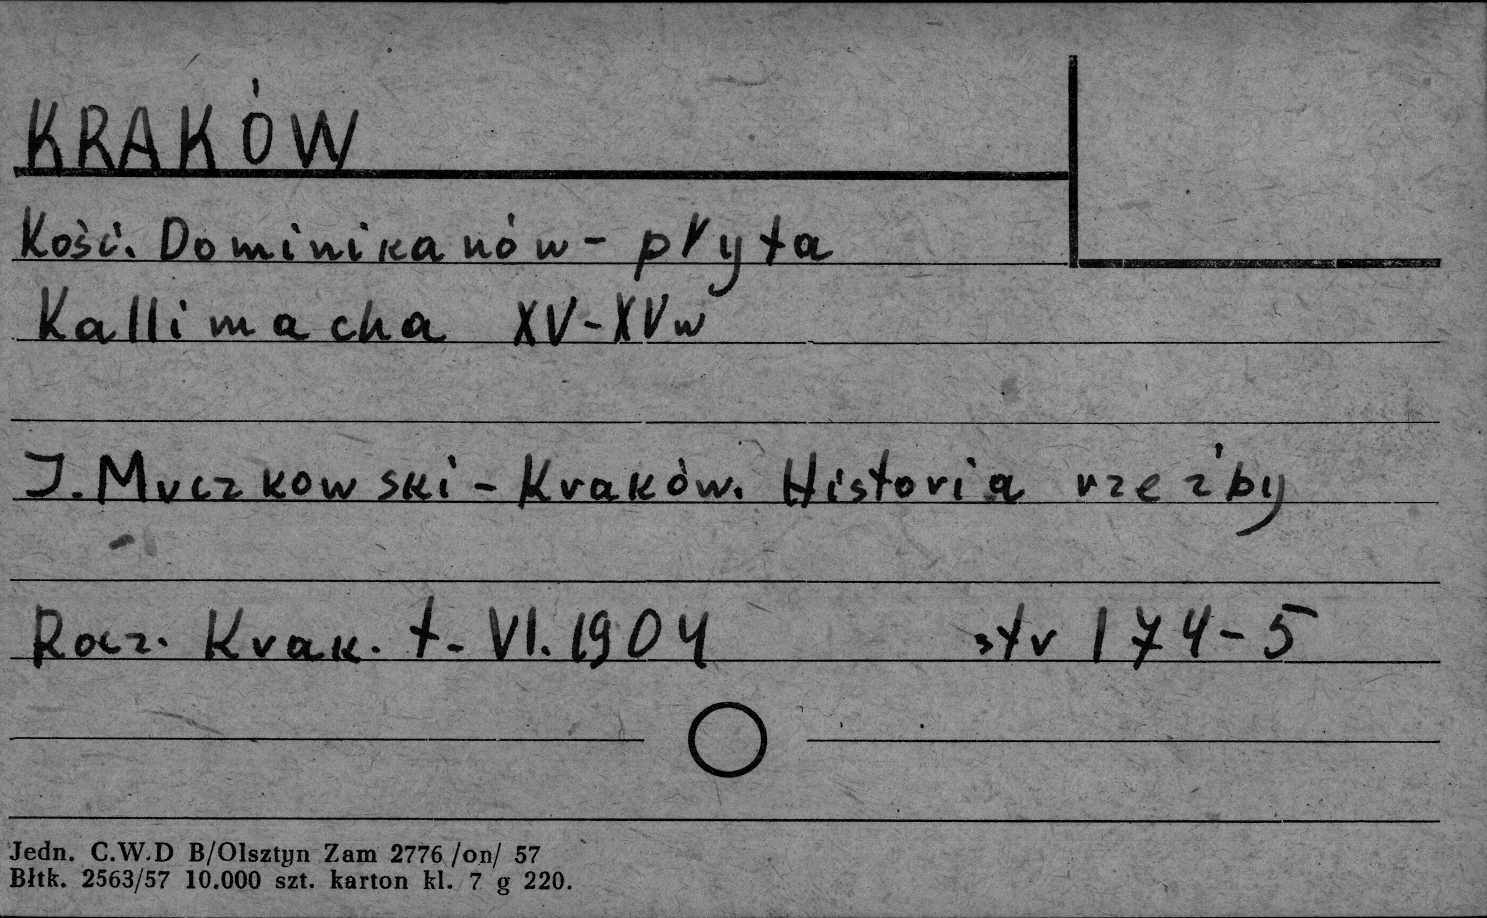 KRAKÓW
Kość. Dominikanów - płyta
Kallimacha XV-XVw
J. Muczkowski - Kraków. Historia rzeźby
Rocz. Krak. t. VI. 1904 str 174-5
Jedn. C.W.D B/Olsztyn Zam 2776 /on/ 57
Błtk. 2563/57 10.000 szt. karton kl. 7 g 220.